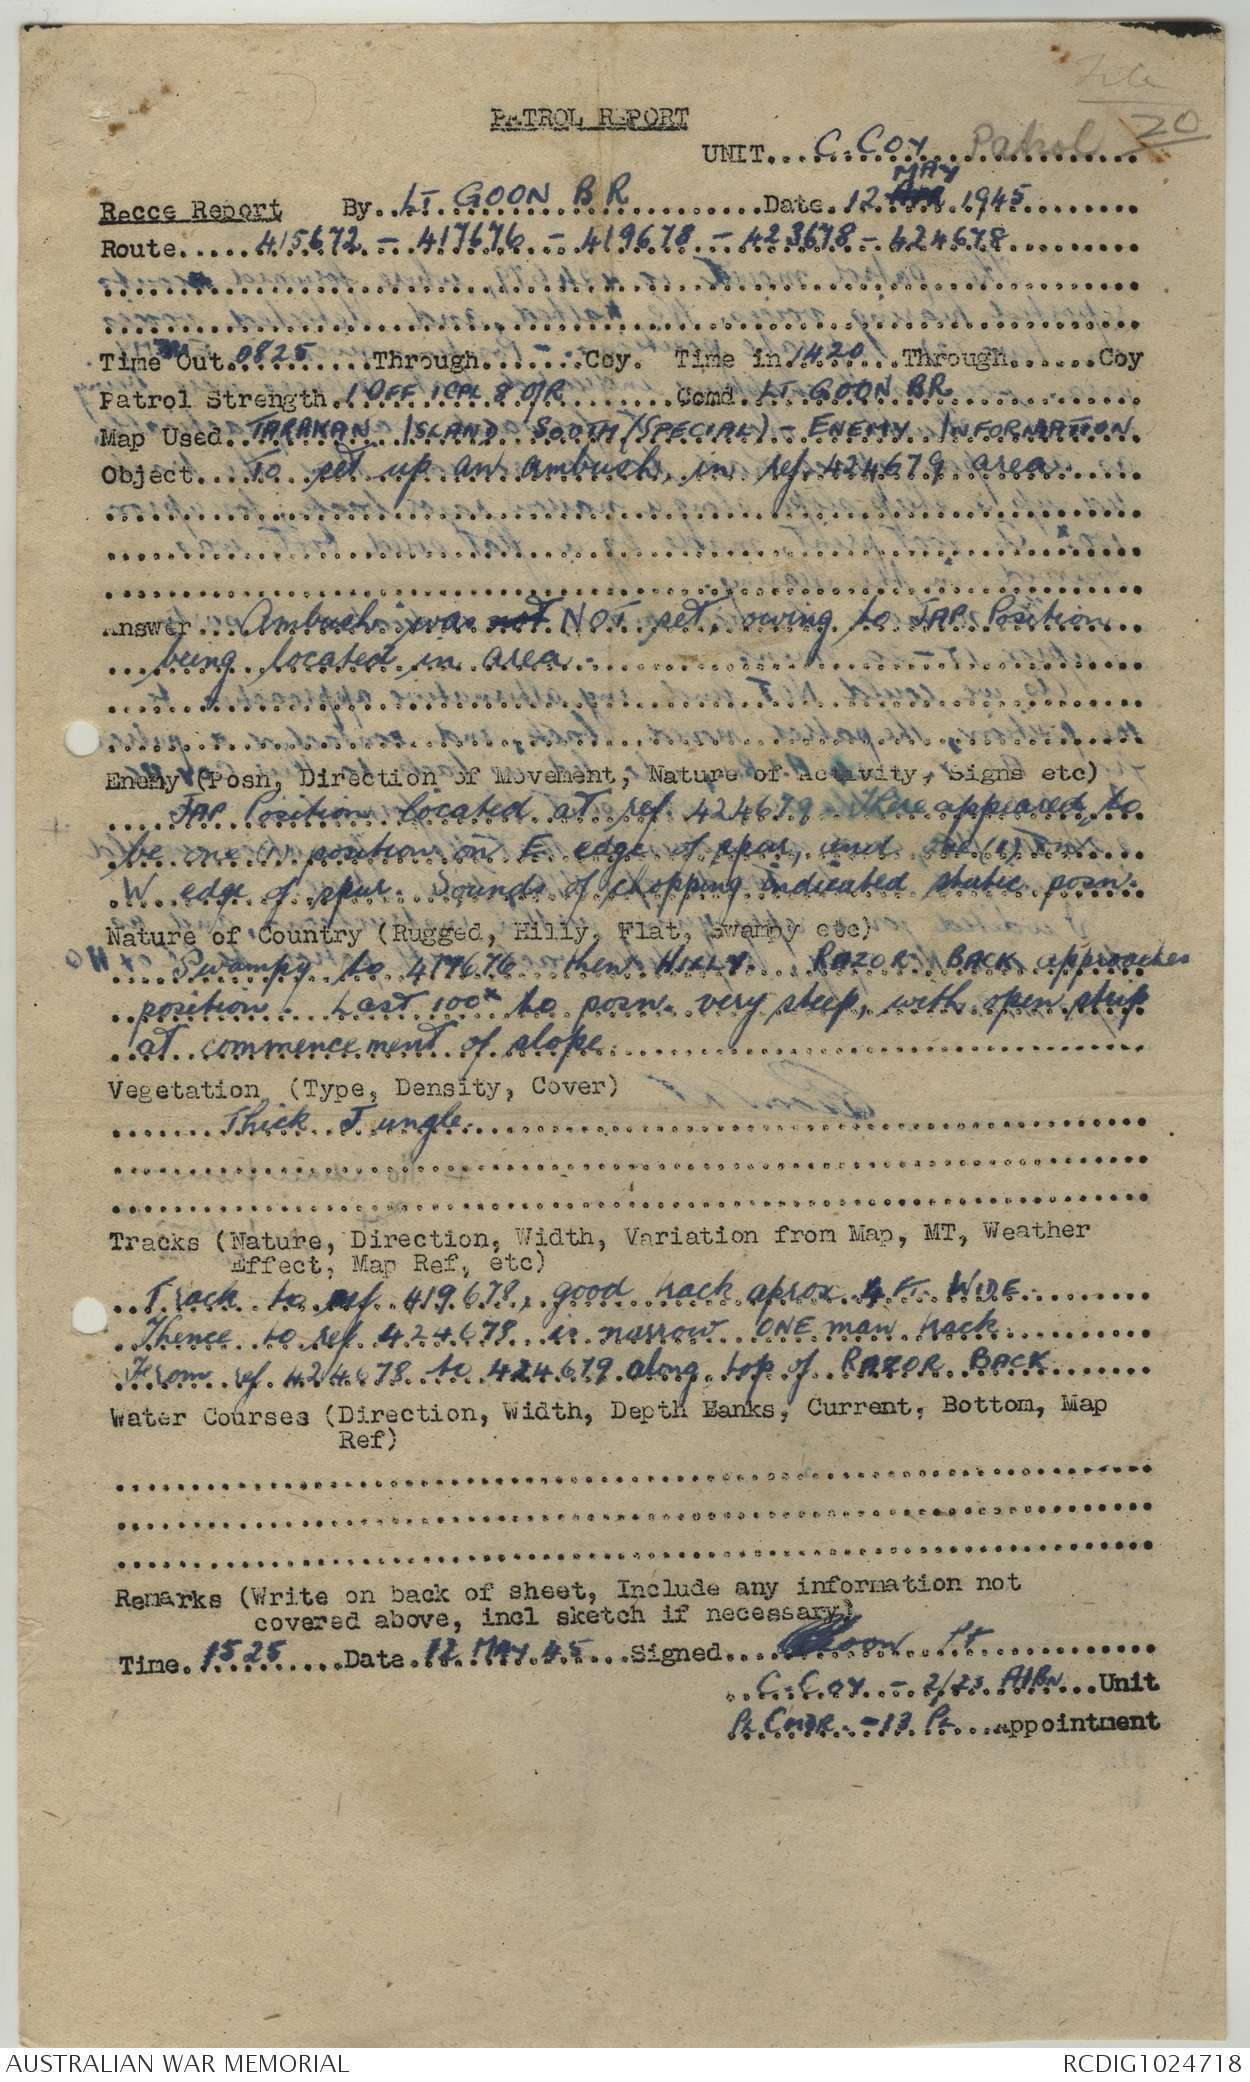 File
PATROL REPORT
UNIT... C. COY Patrol 20
Recce Report By.. LT GOON B R ...Date. 12 MAY 1945
Route..... 415672 - 417676 - 419678 - 423678 - 424678
Time Out. 0825 ...Through... - ..Coy. Time in. 1420 ...Through......Coy
Patrol Strength. 1 OFF 1 CPL 8 O/R ...Comd. LT GOON BR
Map Used. TARAKAN ISLAND SOUTH (SPECIAL) - ENEMY INFORMATION
Object... To set up an ambush, in ref 424679 area.
Answer.. Ambush was not NOT set, owing to JAP Position
being located in area.
Enemy (Posn, Direction of Movement, Nature of Activity, Signs etc)
JAP Position located at ref. 424679. There appeared to
be one (1) position on E edge of spur, and one (1) on
W edge of spur. Sounds of chopping indicated static posn.
Nature of Country (Rugged, Hilly, Flat, Swampy etc)
Swampy to 417676 then HILLY. RAZOR BACK approaches
position. Last 100x to posn. very steep, with open strip
at commencement of slope.
Vegetation (Type, Density, Cover)
Thick Jungle.
Tracks (Nature, Direction, Width, Variation from Map, MT, Weather
Effect, Map Ref, etc)
Track to ref 419678, good track aprox 4 FT WIDE.
Thence to ref 424678 is narrow ONE man track
From ref 424678 to 424679 along top of RAZOR BACK
Water Courses (Direction, Width, Depth Banks, Current, Bottom, Map
Ref)
Remarks (Write on back of sheet, Include any information not
covered above, incl sketch if necessary)
Time. 1525 ...Date. 12 MAY 45 ...Signed.... Goon Lt
C. Coy - 2/23 A I Bn ...Unit
PL CMDR. - 13 PL ...Appointment
AUSTRALIAN WAR MEMORIAL
RCDIG1024718